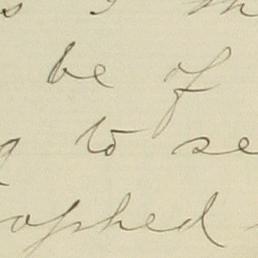 be of
to se
aphed